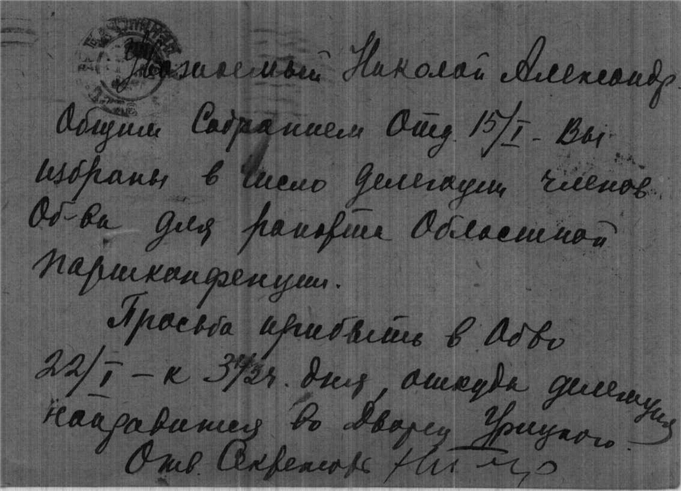 Уважаемый Николай Александр.
Общим Собранием Отд. 15/I - Вы
избраны в число делегации членов
Об-ва для рапорта Областной
партконференции.
Просьба прибыть в Об-во
22/I - к 3 1/2 ч. дня, откуда делегация
направится во Дворец Урицкого.
Отв. Секретарь